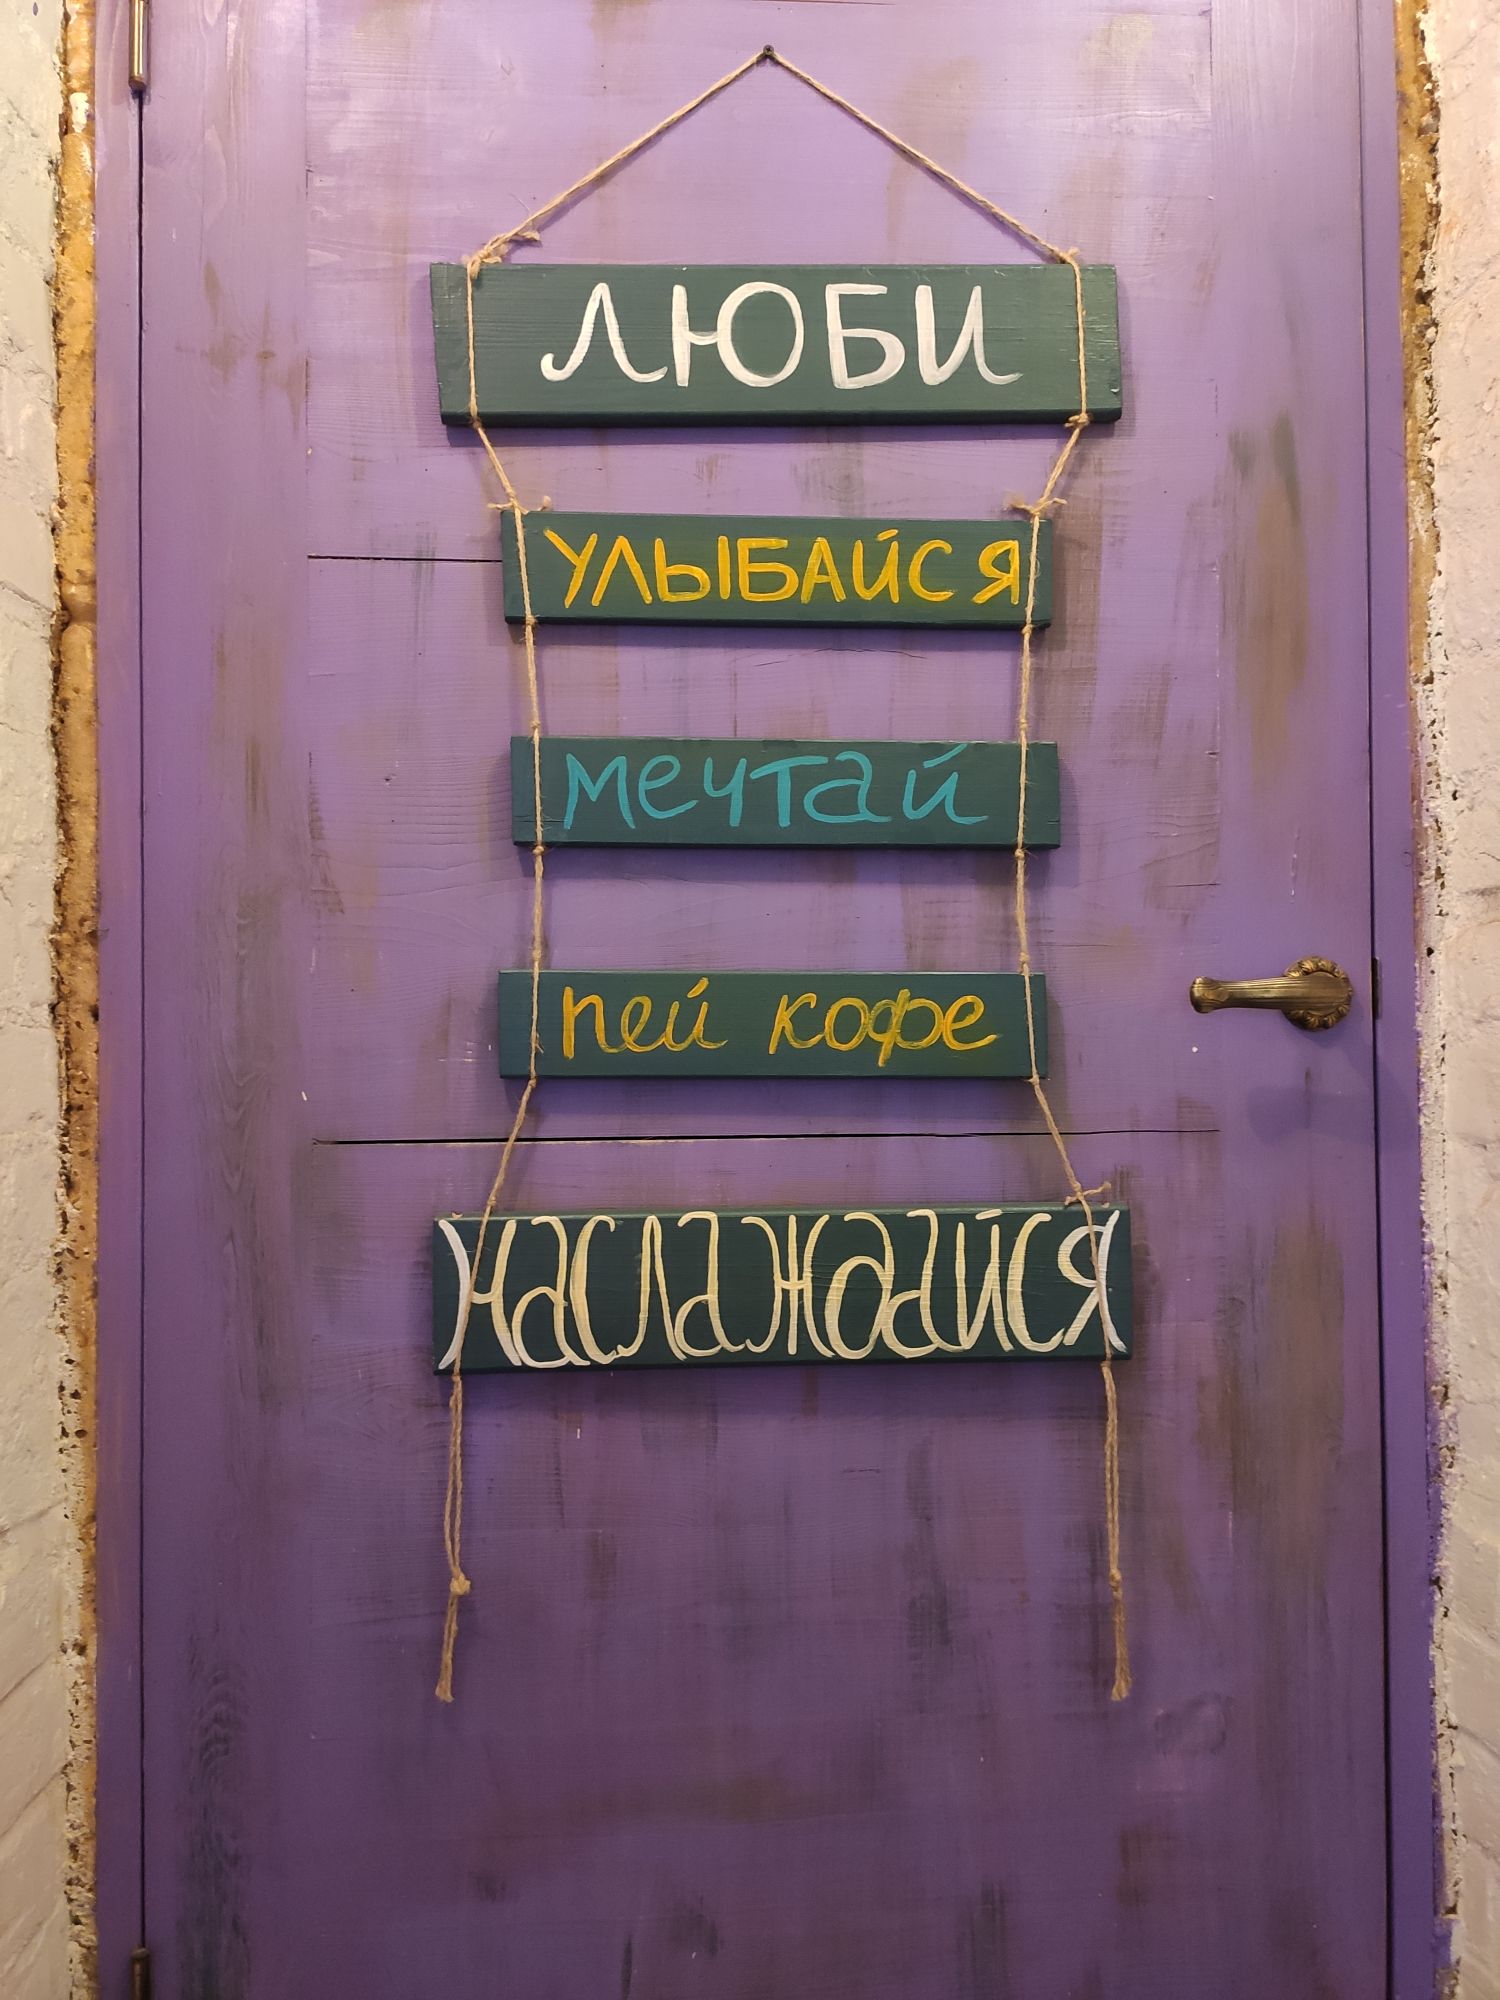 ЛЮБИ
УЛЫБАЙСЯ
мечтай
пей кофе
наслаждайся